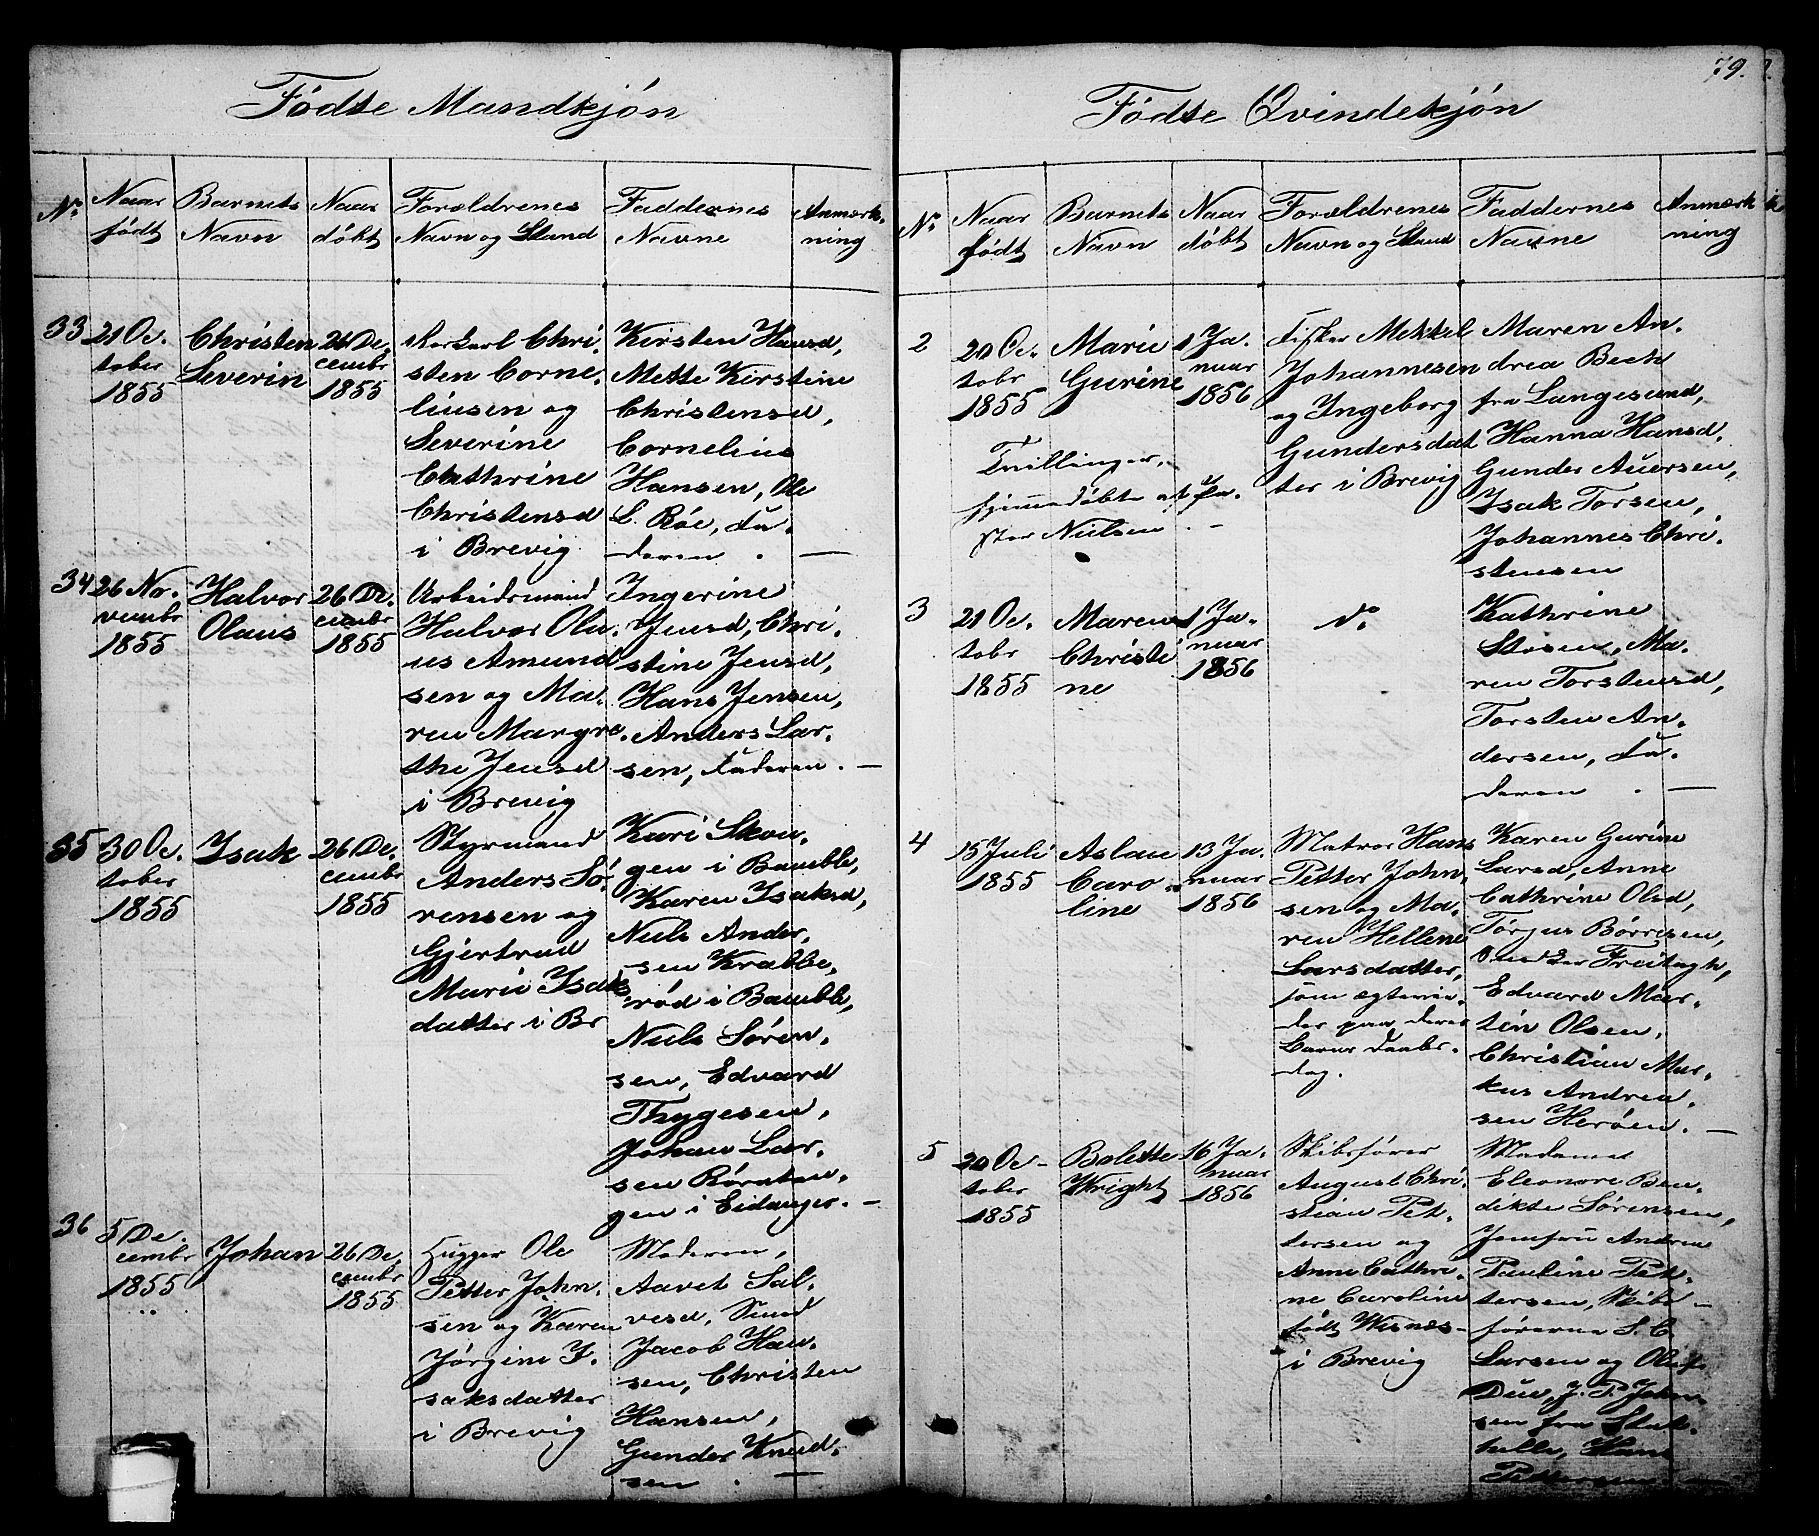 Fødte Mandkjøn
No
Naar født
Barnets Navn
Naar døbt
Forældrenes Navn og Stand
Faddernes Navne
Anmærkning
33
21 Oc.
tober
1855
Christen
Severin
26 De.
cembr
1855
Chri.
sten Corne.
liusen og
Severine
Cathrine
Christensd
i Brevig
Kirsten Hansd,
Mette Kirstine
Christensd,
Cornelius
Hansen, Ole
C. Röe, Fa.
deren . —
34
26 No.
vembr
1855
Halvor
Olaus
26 De.
cembr
1855
Arbeidsmand
Halvor Ola
us Amund
sen og Ma.
ren Margre.
the Jensd
i Brevig
Ingerine
Jensd, Chri.
stine Jensd,
Hans Jensen,
Anders Lar.
sen, Faderen . —
35
30 Oc.
tober
1855
Isak
26 De.
cembr
1855
Styrmand
Anders Sø.
rensen og
Gjertrud
Marie Isaks
datter i Br
Kari Skou.
gen i Bamble,
Karen Isaksd,
Niels Ander.
sen Krabbe.
rød i Bamble,
Niels Søren.
sen, Edvard
Thygesen,
Johan Lar.
sen Rørstan.
gen i Eidanger. —
36
5 De.
cembr
1855
Johan
26 De.
cembr
1855
Hugger Ole
Petter John.
sen og Karen
Jørgine I.
saksdatter
i Brevig
Moderen,
Aavet Sal.
vesd, Sund
Jacob Han
sen, Christen
Hansen,
Gunder Knud.
sen . —
79.
Fødte Qvindekjøn
No
Naar født
Barnets Navn
Naar døbt
Forældrenes Navn og Stand
Faddernes Navne
Anmærkning
2
20 Oc.
tobr
1855
Marie
Gurine
1 Ja.
nuar
1856
Tvillinger,
hjemmedøbte af Pa.
stor Nielsen . –
Fisker Mikkel
Johannesen
og Ingeborg
Gundersdat
ter i Brevig
Maren An.
drea Beck
fra Langesund,
Hanna Hansd.
Gunder Auersen,
Isak Torsen,
Johannes Chri.
stensen
3
20 Oc.
tobr
1855
Maren
Christi
ne
1 Ja.
nuar
1856
do
Kathrine
Stosen, Ma.
ren Torstensd,
Torsten An.
dersen, Fa.
deren . —
4
15 Juli
1855
Aslaue
Caro.
line
13 Ja.
nuar
1856
Matros Hans
Petter John.
sen og Ma.
ren Hellene
Larsdatter,
som ægtevie.
des paa deres
Barns Daabs.
dag.
Karen Gurine
Larsd, Anne
Cathrine Olsd,
Törgus Börresen,
Freitagh,
Edvard Mar.
tin Olsen,
Christian Mar.
kus Andrea.
sen Herøen. —
5
20 Oc.
tober
1855
Bolette
Wright
16 Ja.
nuar
1856
Skibsfører
August Chri.
stian Pet.
tersen og
Anne Cathri.
ne Caroline
født Wesnes
i Brevig
Madame
Eleonore Ben
dikte Sørensen,
Jomfru Andrea
Pauline Pet.
tersen, Skibs
førerne S. C.
Larsen og Oluf
Due, J. P. John
sen fra Stat.
helle, Hans
Pettersen —